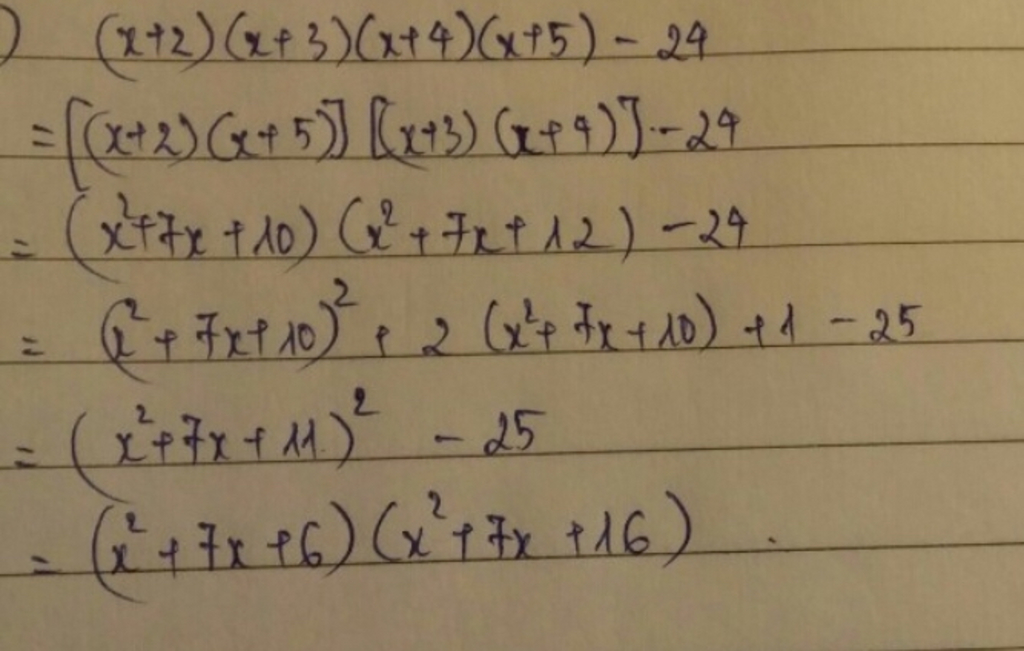 ) (x+2)(x+3)(x+4)(x+5) - 24
= [(x+2)(x+5)] [(x+3)(x+4)] - 24
= (x²+7x+10)(x²+7x+12) - 24
= (x²+7x+10)² + 2(x²+7x+10) + 1 - 25
= (x²+7x+11)² - 25
= (x²+7x+6)(x²+7x+16).